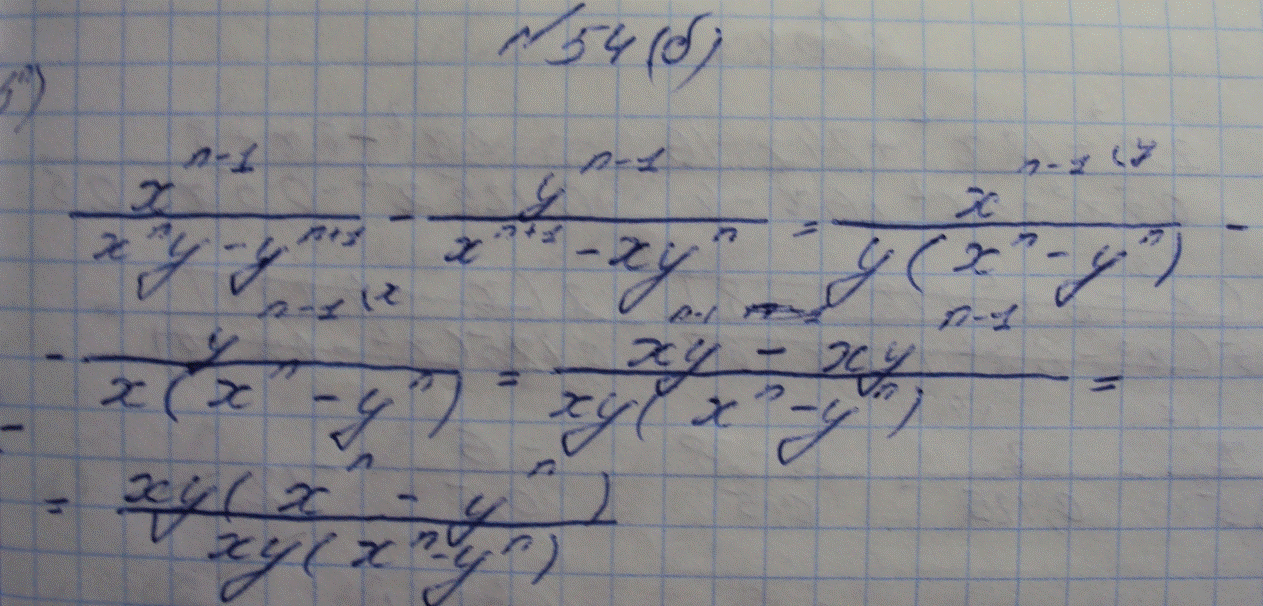 №54(б)
б)
x^{n-1}/(x^n y - y^{n+1}) - y^{n-1}/(x^{n+1} - xy^n) = x^{n-1 (y}/(y(x^n - y^n)) -
- y^{n-1 (x}/(x(x^n - y^n)) = (xy^{n-1} - xy^{n-1})/(xy(x^n - y^n)) =
= xy(x^n - y^n)/(xy(x^n - y^n))